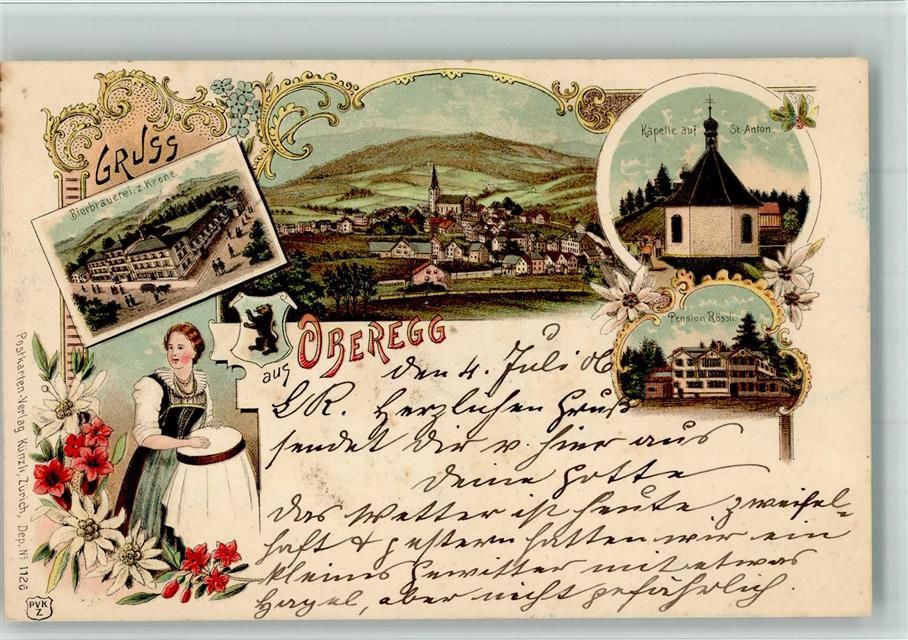 GRUSS
Bierbrauerei z. Krone.
Kapelle auf St. Anton.
Pension Rössli.
aus OBEREGG
den 4. Juli 06
L R. Herzlichen Gruß
sendet Dir v. hier aus
deine Gotte
das Wetter ist heute zweifel-
haft & gestern hatten wir ein
kleines Gewitter mit etwas
Hagel, aber nicht gefährlich.
Postkarten-Verlag Künzli, Zürich, Dep. No 1126
PVK
Z